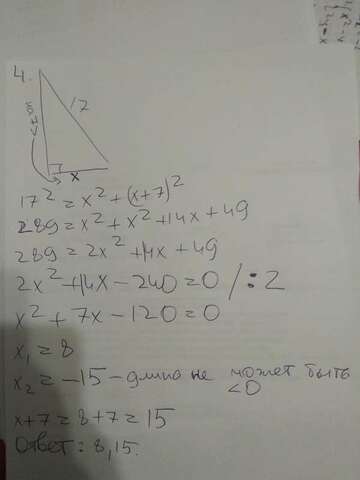 4.
17
x+7
x
17² = x² + (x+7)²
289 = x² + x² + 14x + 49
289 = 2x² + 14x + 49
2x² + 14x - 240 = 0 / : 2
x² + 7x - 120 = 0
x₁ = 8
x₂ = -15 - длина не может быть
<0
x+7 = 8+7 = 15
Ответ: 8, 15.